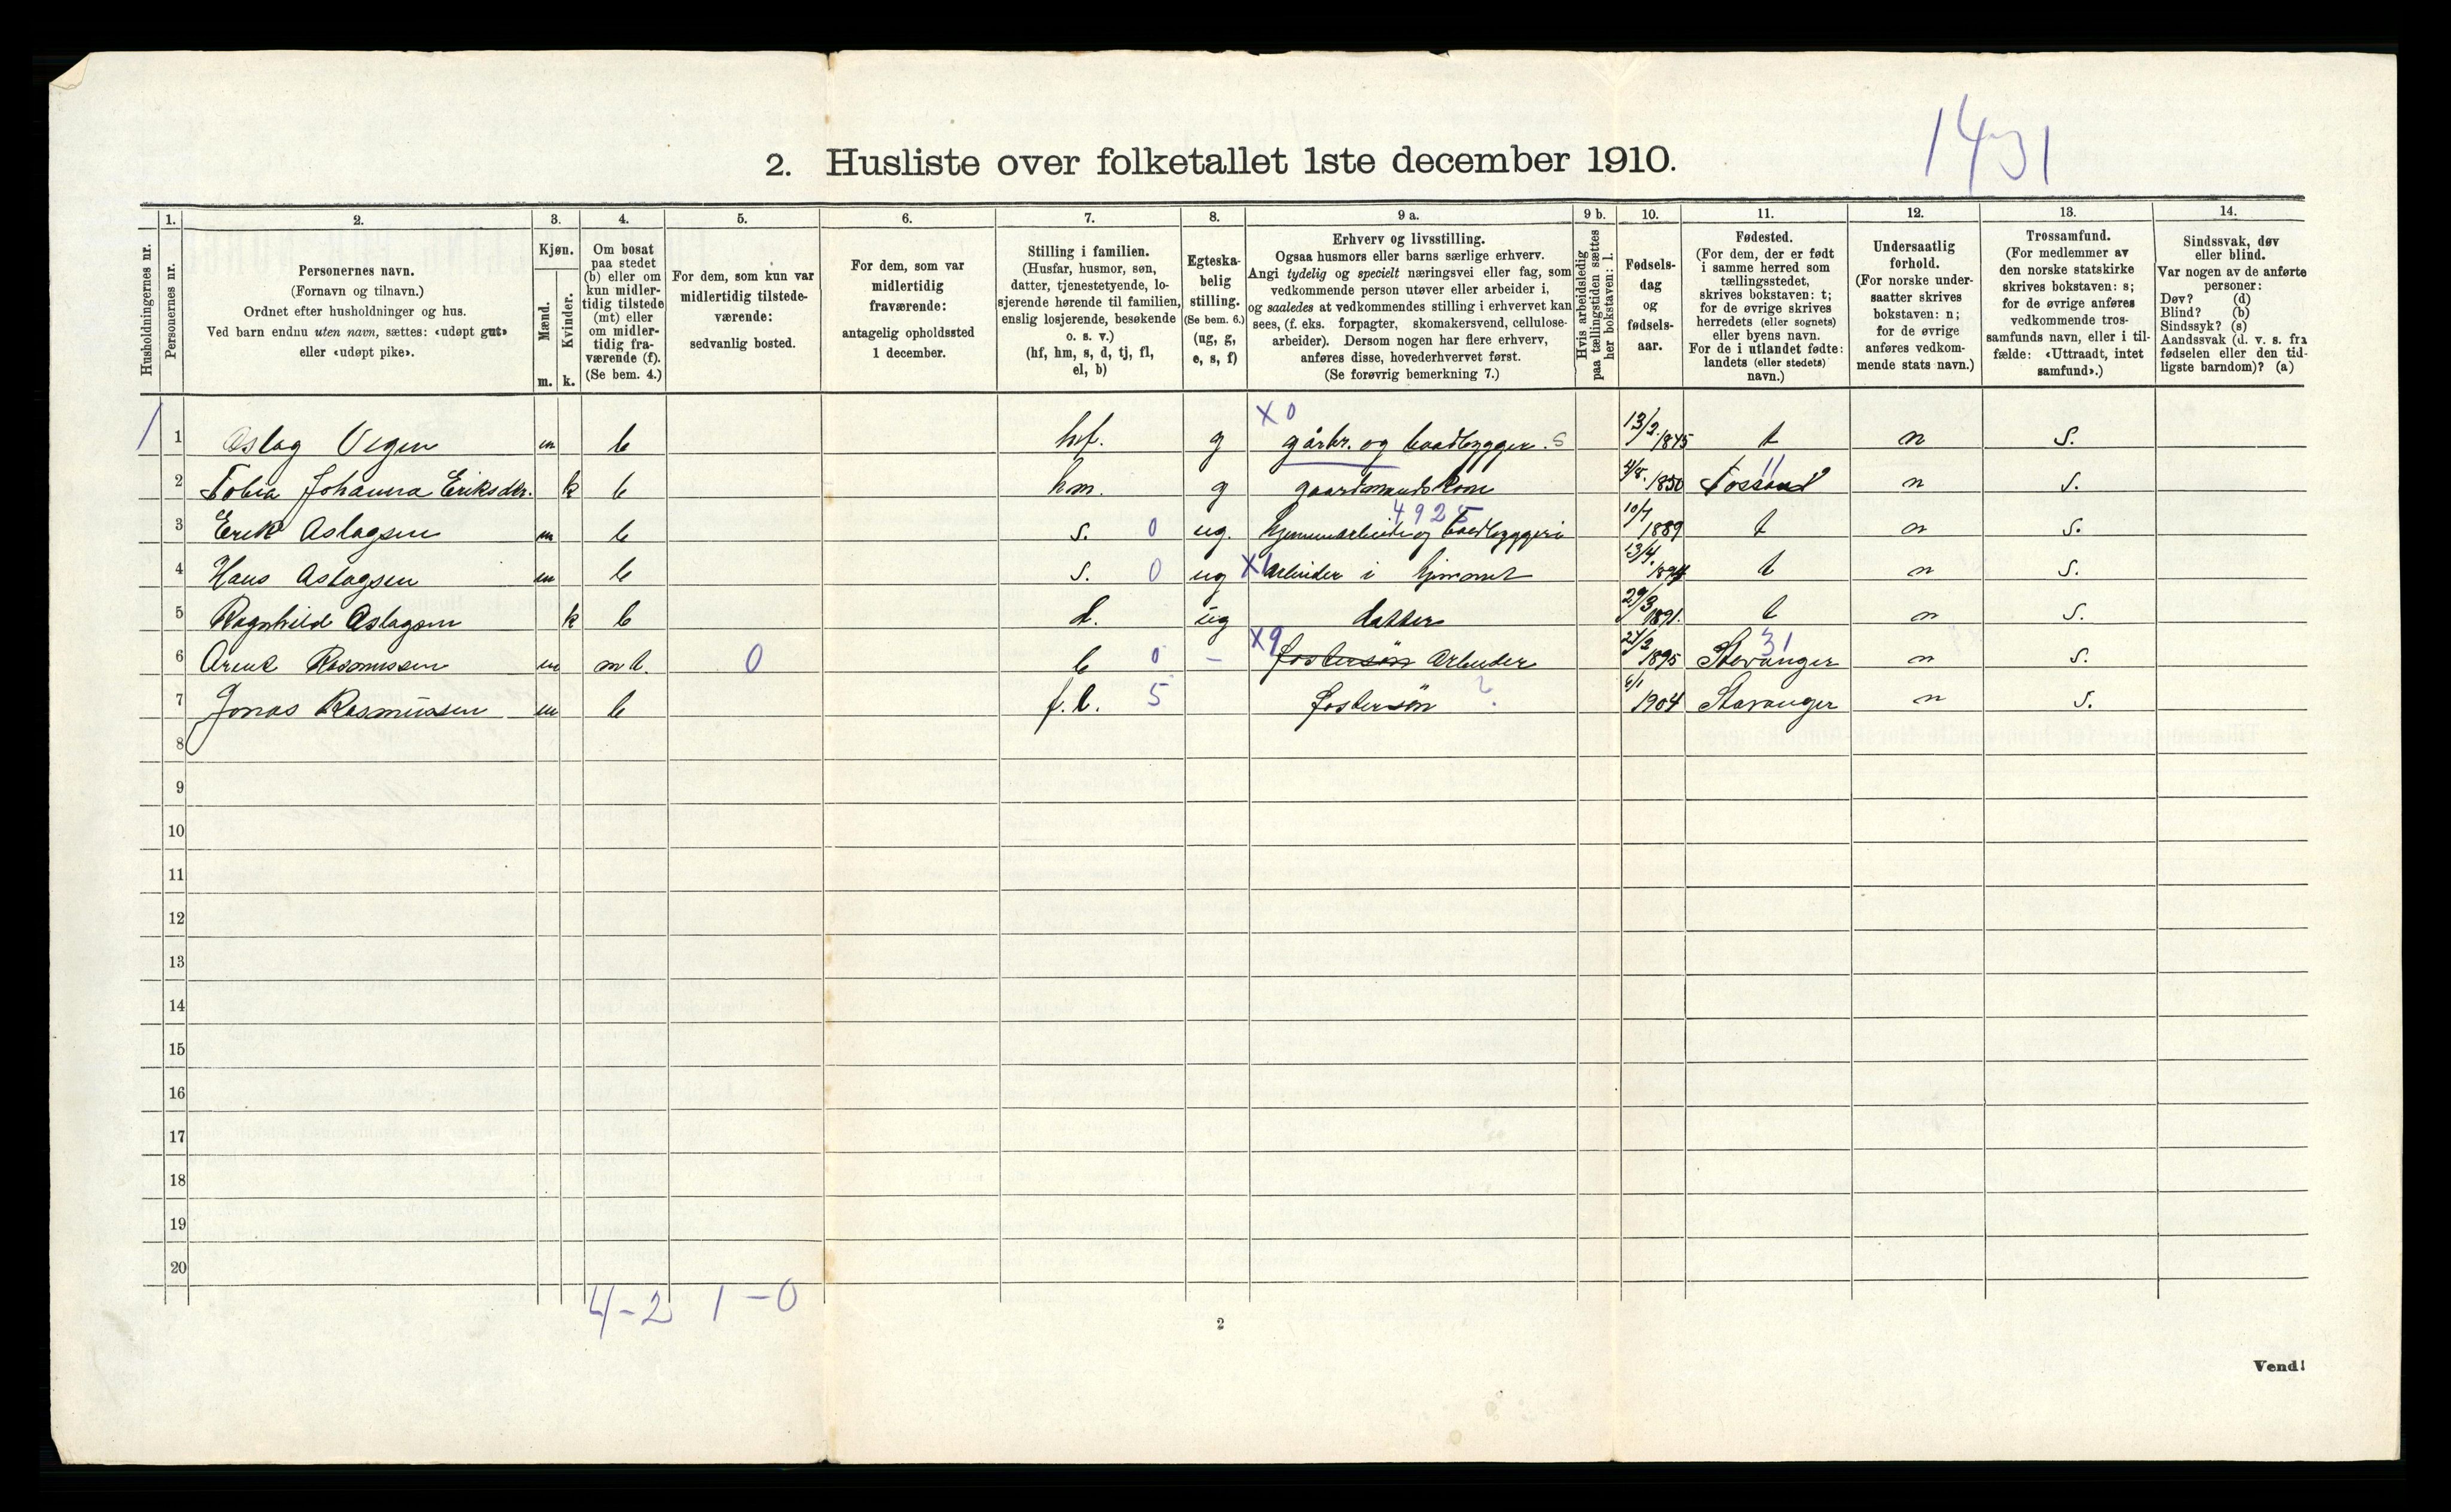 1431
2. Husliste over folketallet 1ste december 1910.
Husholdningernes nr.
1. Personernes nr.
2. Personernes navn.
(Fornavn og tilnavn.)
Ordnet efter husholdninger og hus.
Ved barn endnu uten navn, sættes: «udøpt gut»
eller «udøpt pike».
3. Kjøn.
Mænd. m.
Kvinder. k.
4. Om bosat
paa stedet
(b) eller om
kun midler-
tidig tilstede
(mt) eller
om midler-
tidig fra-
værende (f).
(Se bem. 4.)
5. For dem, som kun var
midlertidig tilstede-
værende:
sedvanlig bosted.
6. For dem, som var
midlertidig
fraværende:
antagelig opholdssted
1 december.
7. Stilling i familien.
(Husfar, husmor, søn,
datter, tjenestetyende, lo-
sjerende hørende til familien,
enslig losjerende, besøkende
o. s. v.)
(hf, hm, s, d, tj, fl,
el, b)
8. Egteska-
belig
stilling.
(Se bem. 6.)
(ug, g,
e, s, f)
9 a. Erhverv og livsstilling.
Ogsaa husmors eller barns særlige erhverv.
Angi tydelig og specielt næringsvei eller fag, som
vedkommende person utøver eller arbeider i,
og saaledes at vedkommendes stilling i erhvervet kan
sees, (f. eks. forpagter, skomakersvend, cellulose-
arbeider). Dersom nogen har flere erhverv,
anføres disse, hovederhvervet først.
(Se forøvrig bemerkning 7.)
9 b. Hvis arbeidsledig
paa tællingstiden sættes
her bokstaven: l.
10. Fødsels-
dag
og
fødsels-
aar.
11. Fødested.
(For dem, der er født
i samme herred som
tællingsstedet,
skrives bokstaven: t;
for de øvrige skrives
herredets (eller sognets)
eller byens navn.
For de i utlandet fødte:
landets (eller stedets)
navn.)
12. Undersaatlig
forhold.
(For norske under-
saatter skrives
bokstaven: n;
for de øvrige
anføres vedkom-
mende stats navn.)
13. Trossamfund.
(For medlemmer av
den norske statskirke
skrives bokstaven: s;
for de øvrige anføres
vedkommende tros-
samfunds navn, eller i til-
fælde: «Uttraadt, intet
samfund».)
14. Sindssvak, døv
eller blind.
Var nogen av de anførte
personer:
Døv? (d)
Blind? (b)
Sindssyk? (s)
Aandssvak (d. v. s. fra
fødselen eller den tid-
ligste barndom)? (a)
X 0
1 1 Aslag Vegen m b hf. g gårbr. og baadbygger. S 13/2 1845 t n S.
2 Tobia Johanna Eriksdtr. k b hm. g gaardmandskone 1850 11 n S.
4925
3 Erik Aslagsen m b s. 0 ug. hjemmearbeide og baadbyggeri 10/7 1889 t n S.
4 Hans Aslagsen m b s. 0 ug X1 arbeider i hjemmet 13/4. t n S.
5 Ragnhild Aslagsen k b d. ug datter 29/3 1891. t n S.
6 Rasmussen m mt. 0 b 0 - X9 fostersøn Arbeider 1895 31 Stavanger n S.
7 Jonas Rasmussen m b f.b. 5 fostersøn ? 6/1 1904 Stavanger n S.
8
9
10
11
12
13
14
15
16
17
18
19
20
4-2 1-0
2
Vend!